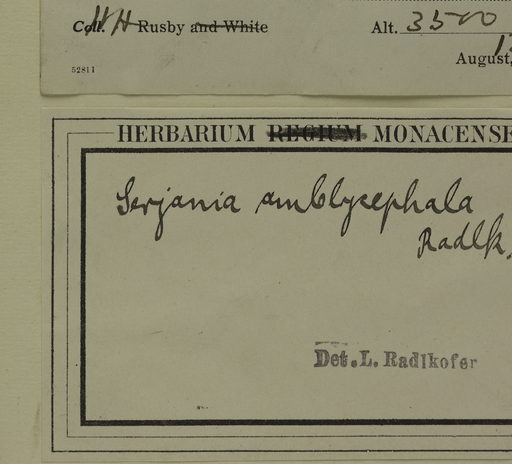 Coll. HH Rusby and White Alt. 3500
August,
52811
HERBARIUM REGIUM MONACENSE
Serjania amblycephala
Radlk.
Det. L. Radlkofer